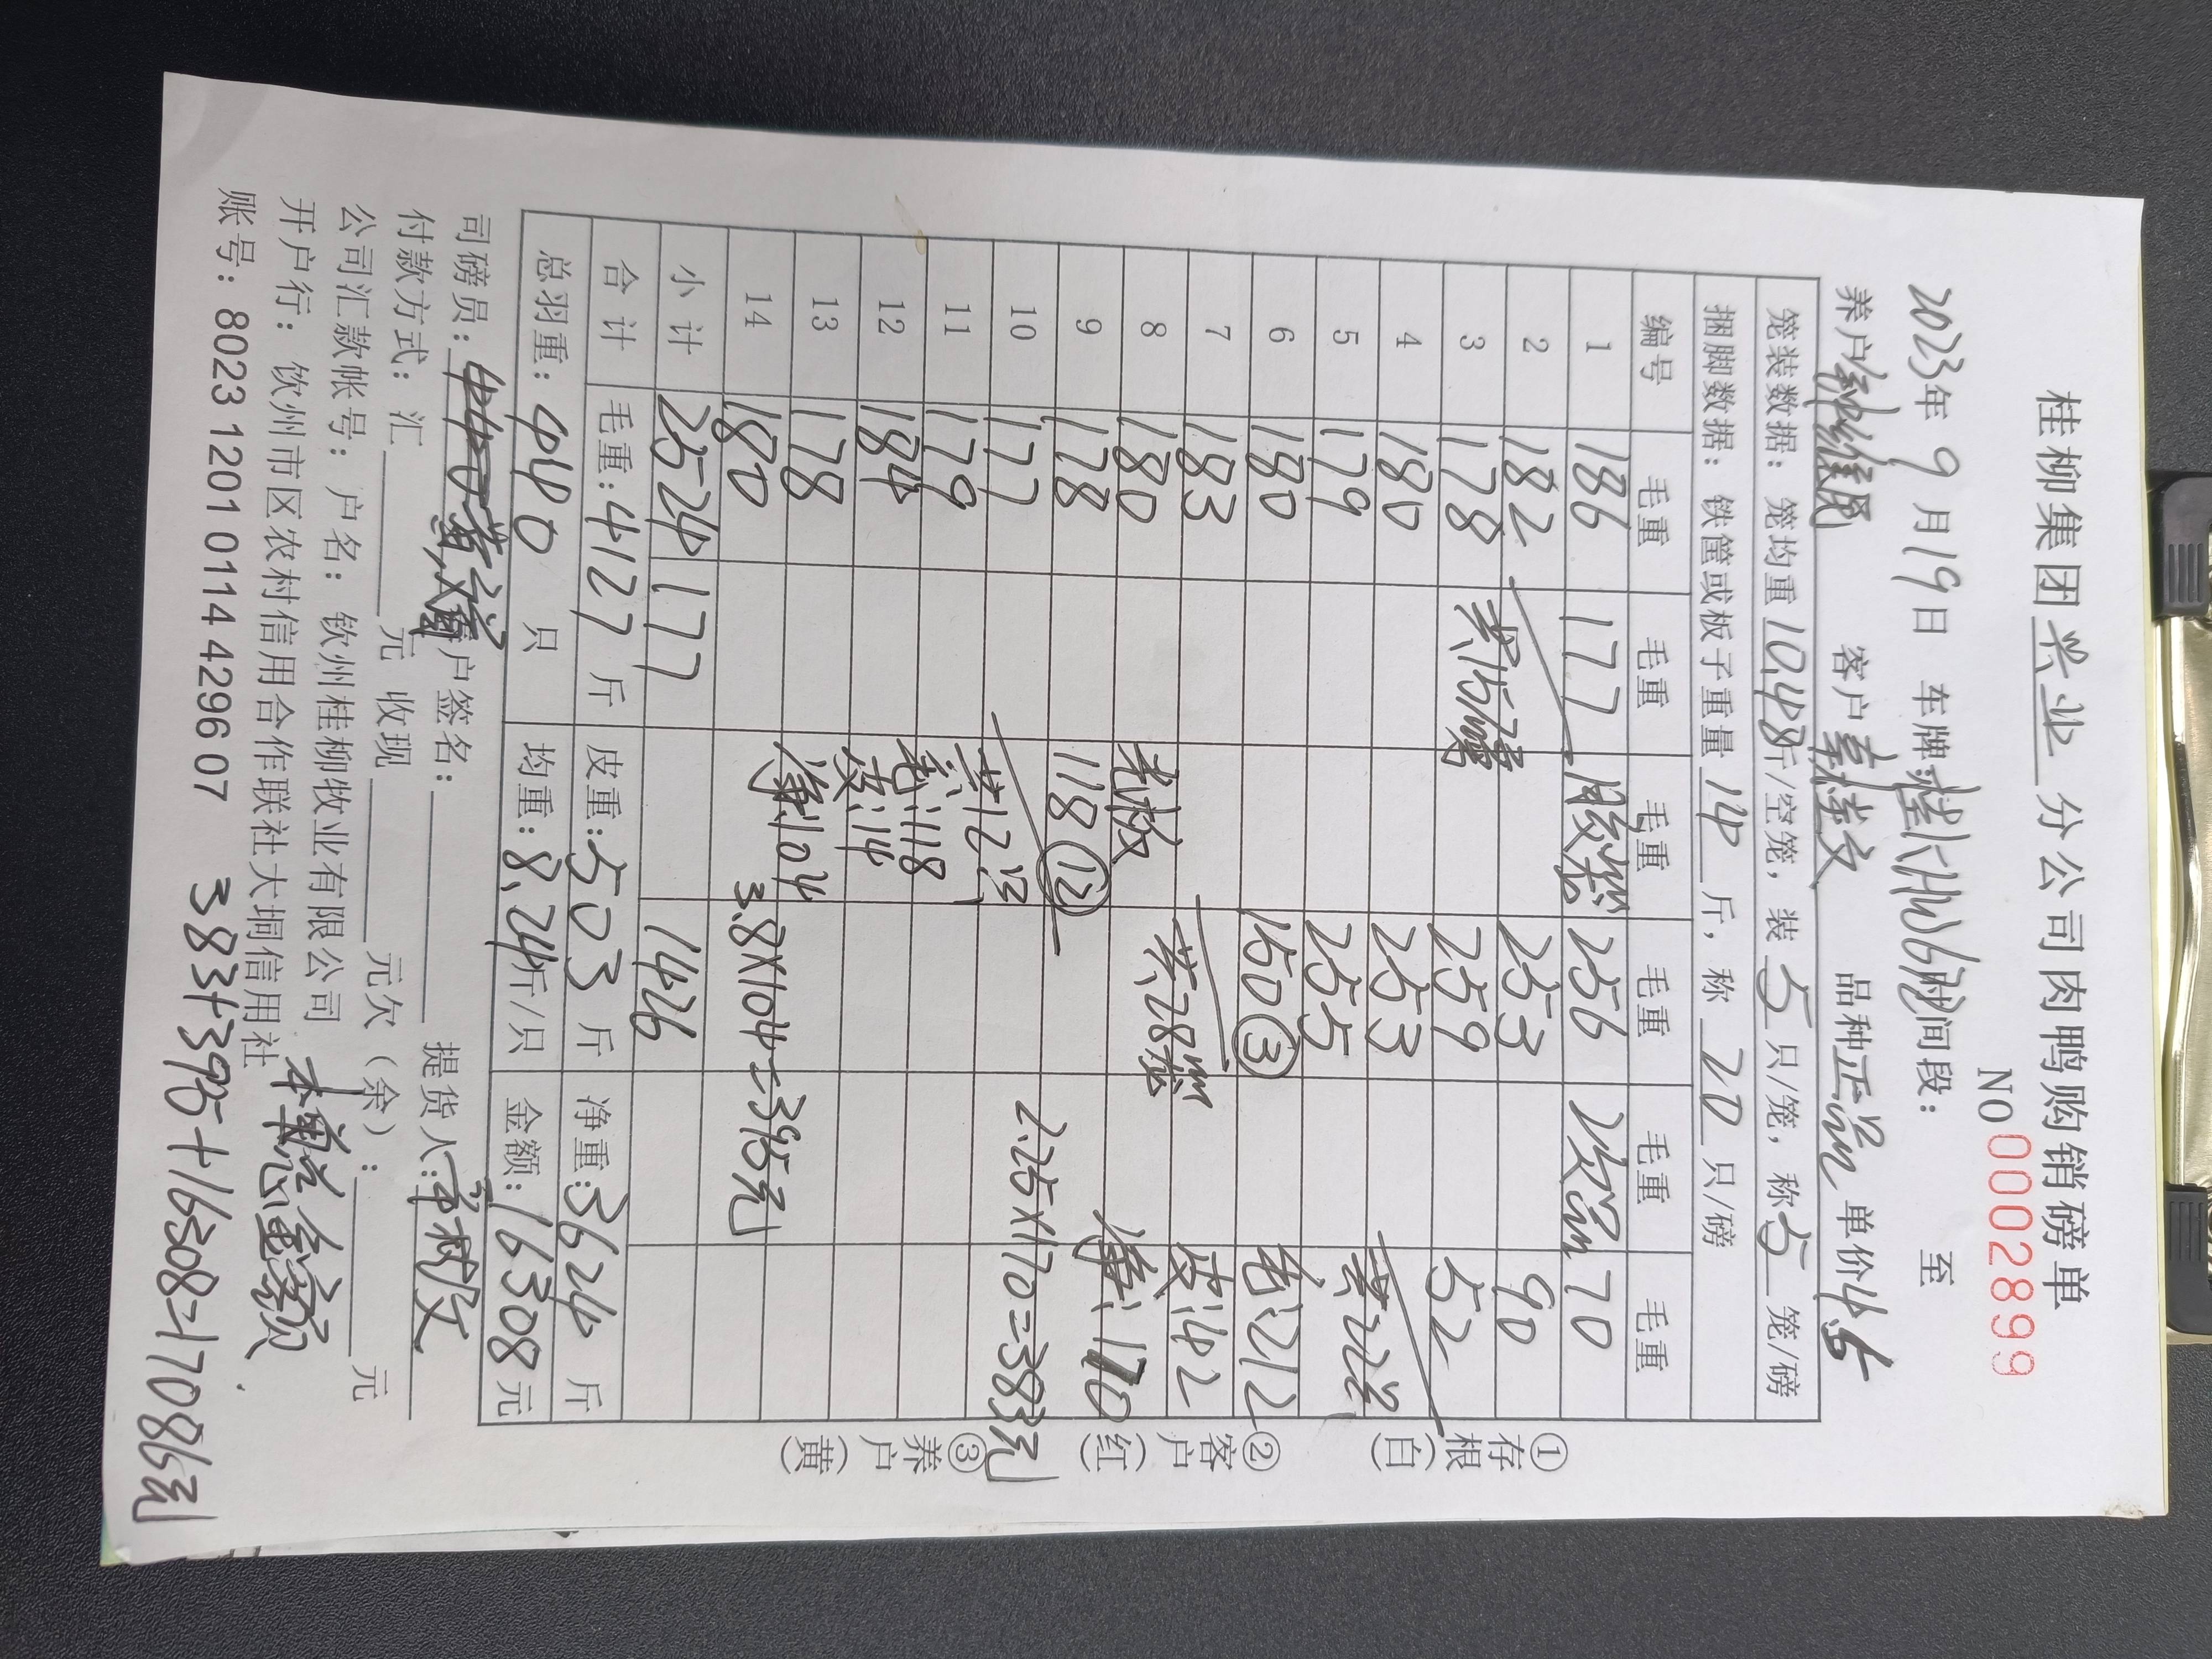 桂柳集团兴业分公司肉鸭购销磅单
NO 0002899
2023年9月19日 车牌:桂 时间段: 至
养户 客户 品种正品 单价4.5
笼装数据:笼均重10.48斤/空笼,装5只/笼,称5笼/磅
捆脚数据:铁筐或板子重量14斤,称20只/磅
编号 毛重 毛重 毛重 毛重 毛重 毛重
1 186 177 胶袋 256 次品 70
2 182 253 90
3 178 共15磅 259 52
4 180 253 共22只
5 179 255 毛:212
6 180 150③ 皮:42
7 183 共28袋 净:170
8 180 光板
9 178 118⑫
10 177 共12只 2.25X170=383元
11 179 毛:118
12 184 皮:14
13 178 净:104
14 180 3.8X104=395元
小计 2524 177 1426
合计 毛重:4127斤 皮重:503斤 净重:3624斤
总羽重:440只 均重:8.24斤/只 金额:16308元
司磅员: 户签名: 提货人:
付款方式:汇 元 收现 元欠(余): 元
公司汇款帐号:户名:钦州桂柳牧业有限公司
开户行:饮州市区农村信用合作联社大垌信用社
本单总金额
账号:8023 1201 0114 4296 07
383+395+16308=17086元
①存根(白)
②客户(红)
③养户(黄)